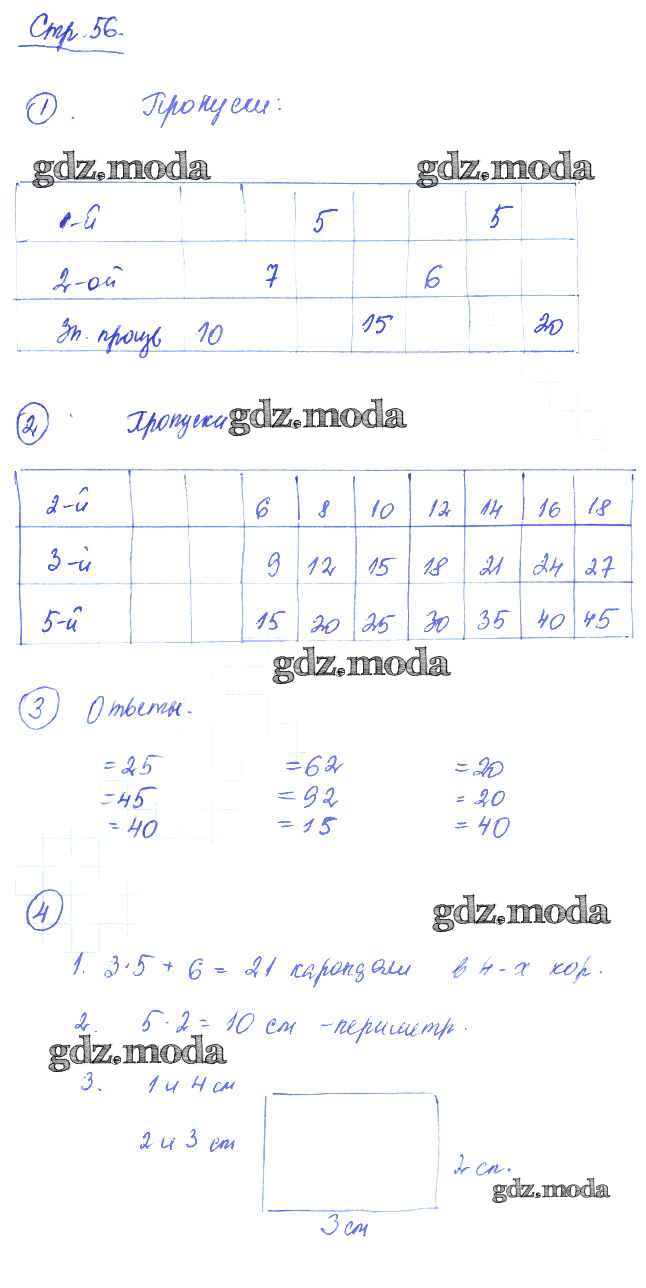 Стр. 56.
1. Пропуски:
gdz.moda gdz.moda
1-й 5 5
2-ой 7 6
Зн. произв 10 15 20
2 Пропуски gdz.moda
2-й 6 8 10 12 14 16 18
3-й 9 12 15 18 21 24 27
5-й 15 20 25 30 35 40 45
gdz.moda
3 Ответы.
=25 =62 =20
=45 =92 =20
=40 =15 =40
4 gdz.moda
1. 3·5 + 6 = 21 карандаш в 4-х кор.
2. 5·2 = 10 см - периметр.
gdz.moda
3. 1 и 4 см
2 и 3 см
2 см.
gdz.moda
3 см